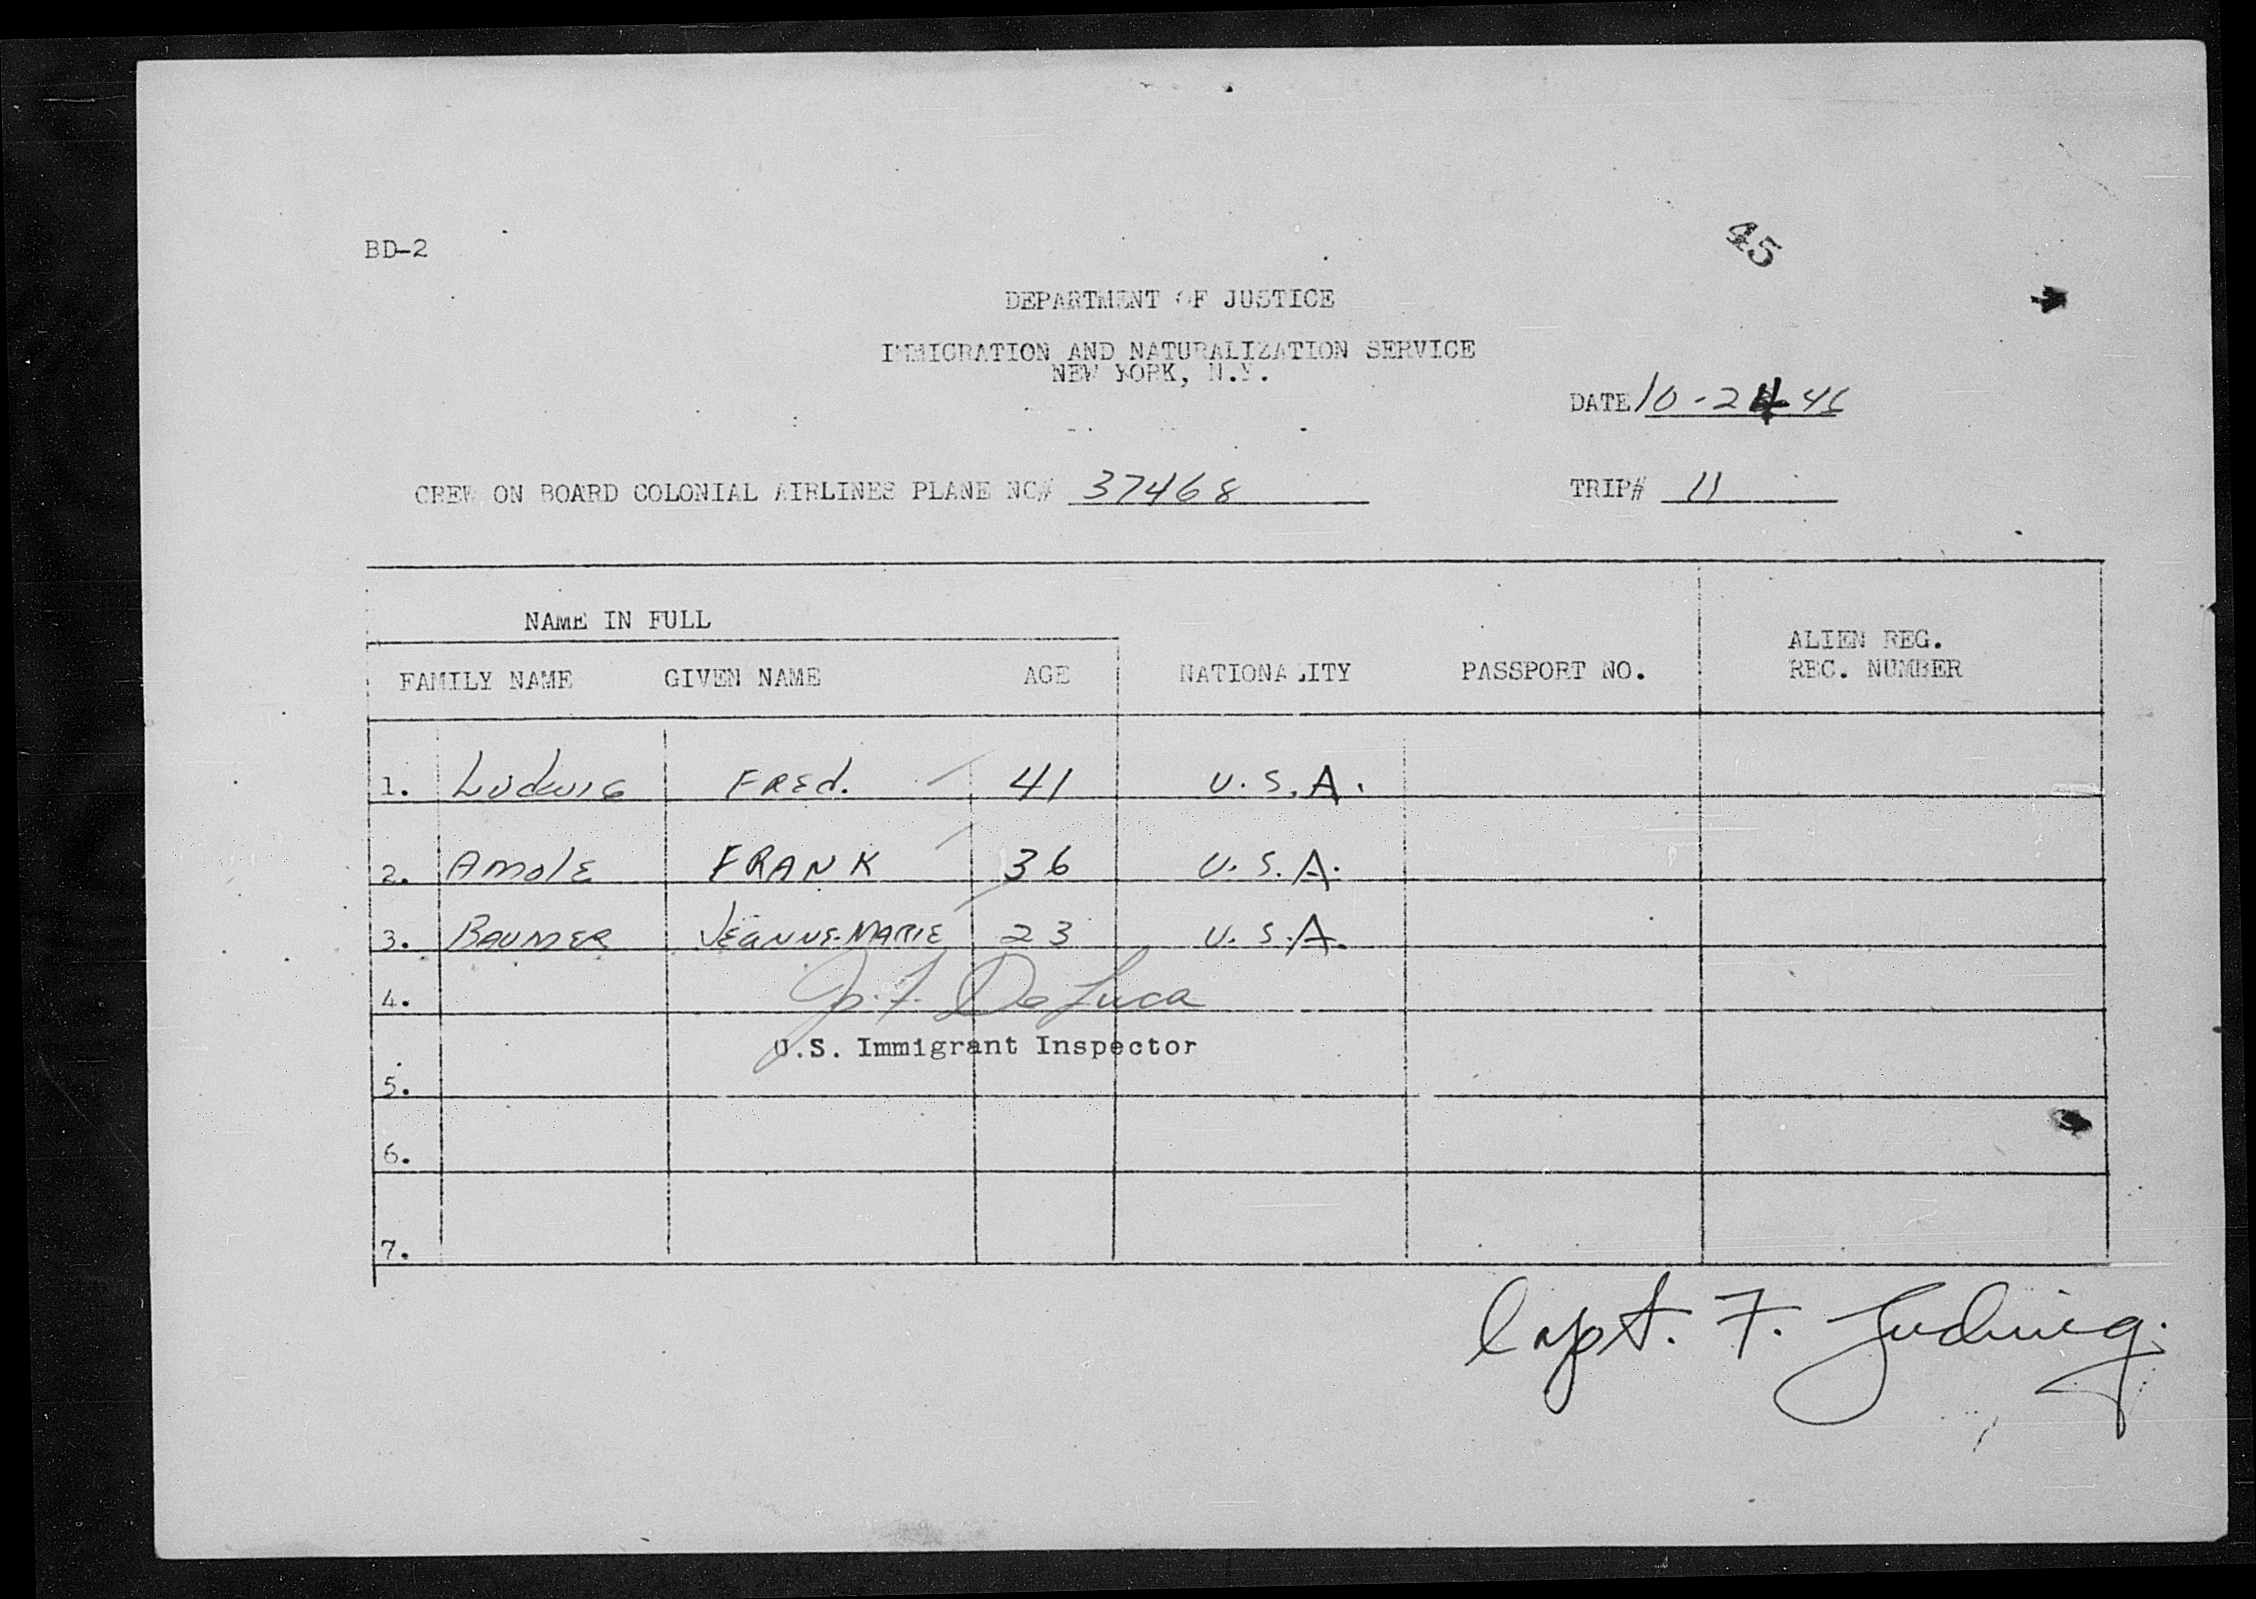 BD-2
45
DEPARTMENT OF JUSTICE
IMMIGRATION AND NATURALIZATION SERVICE
NEW YORK, N.Y.
DATE 10-24-46
CREW ON BOARD COLONIAL AIRLINES PLANE NC# 37468 TRIP# 11
NAME IN FULL
FAMILY NAME GIVEN NAME AGE NATIONALITY PASSPORT NO. ALIEN REG. REC. NUMBER
1. Ludwig Fred. 41 U.S.A.
2. Amole FRANK 36 U.S.A.
3. BAUMER JEANNE-MARIE 23 U.S.A.
4. J. F. De Luca
U.S. Immigrant Inspector
5.
6.
7.
Capt. F. Ludwig.